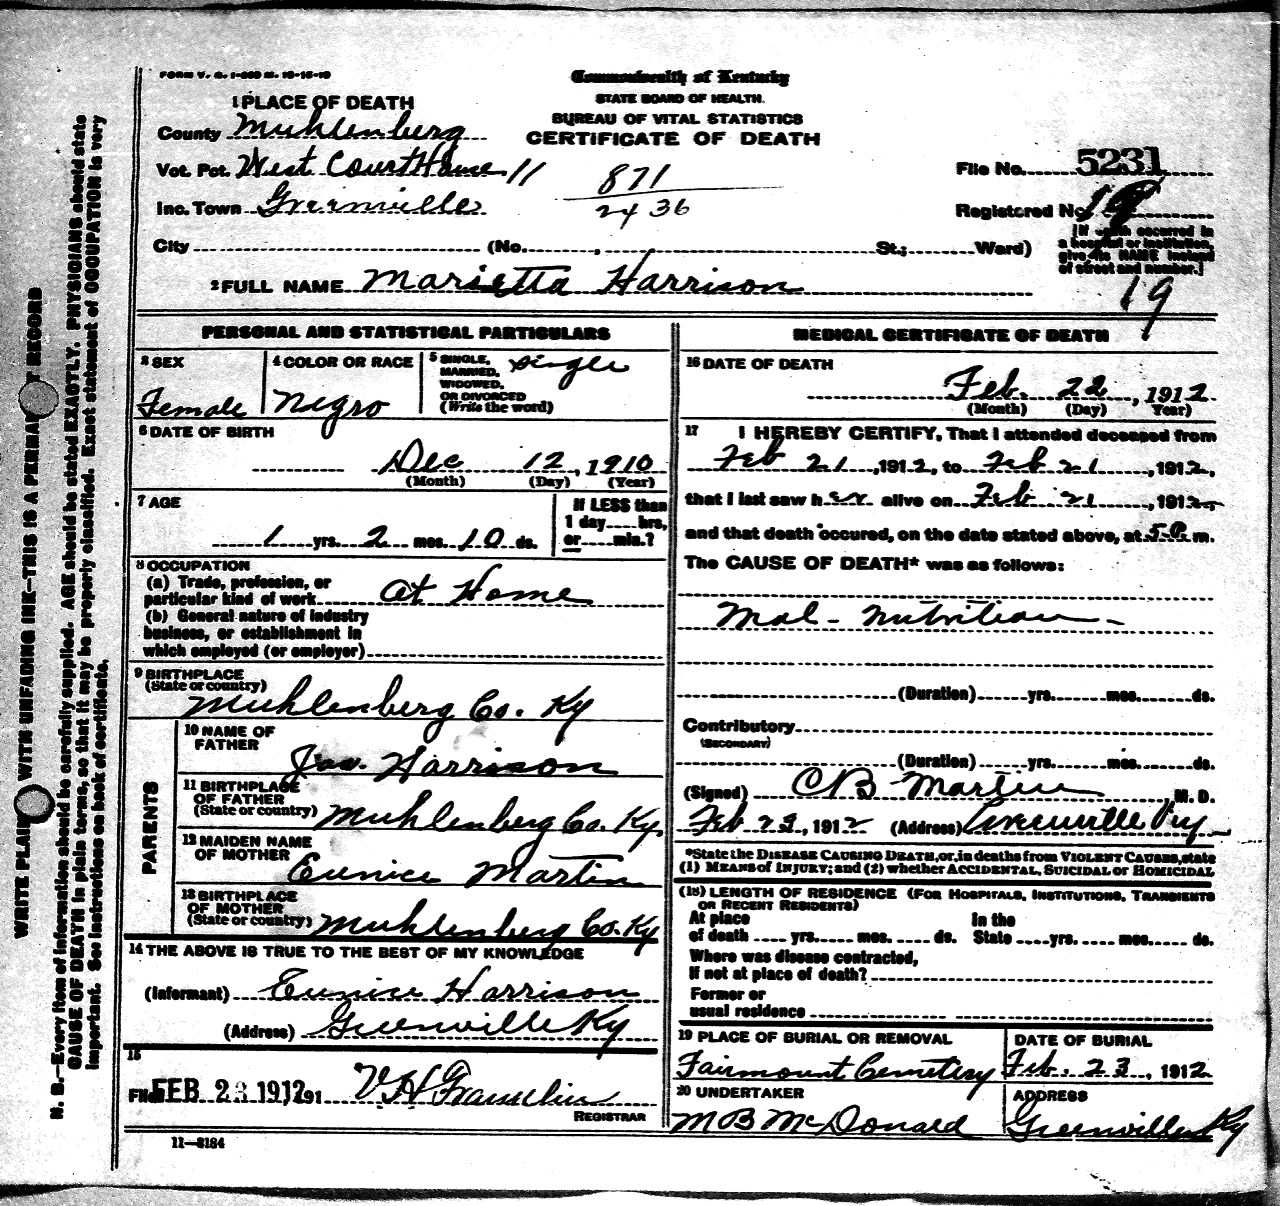 FORM V. S. 1-200 M. 12-15-10
Commonwealth of Kentucky
STATE BOARD OF HEALTH.
BUREAU OF VITAL STATISTICS
CERTIFICATE OF DEATH
1 PLACE OF DEATH
County Muhlenberg
Vot. Pct. West Court House 11
Inc. Town Greenville
871
24 36
File No. 5231
Registered No. 19
City (No. , St.; Ward)
[If death occurred in
a hospital or institution,
give its NAME instead
of street and number.]
19
2 FULL NAME Marietta Harrison
PERSONAL AND STATISTICAL PARTICULARS
3 SEX
Female
4 COLOR OR RACE
Negro
5 SINGLE,
MARRIED,
WIDOWED,
OR DIVORCED
(Write the word)
Single
6 DATE OF BIRTH
Dec 12, 1910
(Month) (Day) (Year)
7 AGE
1 yrs. 2 mos. 10 ds.
If LESS than
1 day hrs.
or min.?
8 OCCUPATION
(a) Trade, profession, or
particular kind of work At Home
(b) General nature of industry
business, or establishment in
which employed (or employer)
9 BIRTHPLACE
(State or country)
Muhlenberg Co. Ky
PARENTS
10 NAME OF
FATHER
Jas. Harrison
11 BIRTHPLACE
OF FATHER
(State or country) Muhlenberg Co. Ky.
12 MAIDEN NAME
OF MOTHER
Eunice Martin
13 BIRTHPLACE
OF MOTHER
(State or country) Muhlenberg Co. Ky
14 THE ABOVE IS TRUE TO THE BEST OF MY KNOWLEDGE
(Informant) Eunice Harrison
(Address) Greenville Ky
15
Filed FEB 23 1912 191
V H
REGISTRAR
11—3184
MEDICAL CERTIFICATE OF DEATH
16 DATE OF DEATH
Feb. 22, 1912
(Month) (Day) Year)
17 I HEREBY CERTIFY, That I attended deceased from
Feb 21, 1912, to Feb 21, 1912,
that I last saw her alive on Feb 21, 1912,
and that death occured, on the date stated above, at 5 a m.
The CAUSE OF DEATH* was as follows:
Mal-nutrition
(Duration) yrs. mos. ds.
Contributory
(SECONDARY)
(Duration) yrs. mos. ds.
(Signed) CB Martin, M. D.
Feb 23, 1912 (Address) Greenville Ky
*State the DISEASE CAUSING DEATH, or, in deaths from VIOLENT CAUSES, state
(1) MEANS of INJURY; and (2) whether ACCIDENTAL, SUICIDAL or HOMICIDAL
(18) LENGTH OF RESIDENCE (FOR HOSPITALS, INSTITUTIONS, TRANSIENTS
OR RECENT RESIDENTS)
At place
of death yrs. mos. ds.
In the
State yrs. mos. ds.
Where was disease contracted,
if not at place of death?
Former or
usual residence
19 PLACE OF BURIAL OR REMOVAL
Fairmount Cemetery
DATE OF BURIAL
Feb. 23, 1912
20 UNDERTAKER
MB McDonald
ADDRESS
Greenville Ky
WRITE PLAINLY WITH UNFADING INK—THIS IS A PERMANENT RECORD
N. B.—Every item of information should be carefully supplied. AGE should be stated EXACTLY. PHYSICIANS should state
CAUSE OF DEATH in plain terms, so that it may be properly classified. Exact statement of OCCUPATION is very
important. See instructions on back of certificate.